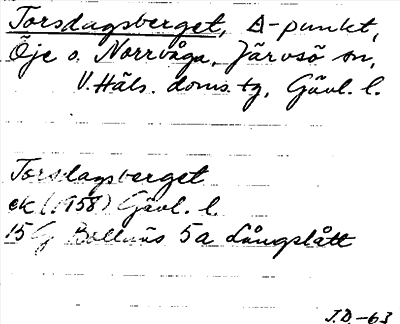 Torsdagsberget, Δ-punkt,
Öje o. Norrvåga, Järvsö sn,
V. Häls. doms. tg, Gävl. l.
Torsdagsberget
ek (1958) Gävl. l.
15G Bollnäs 5a Långslått
J.D.-63